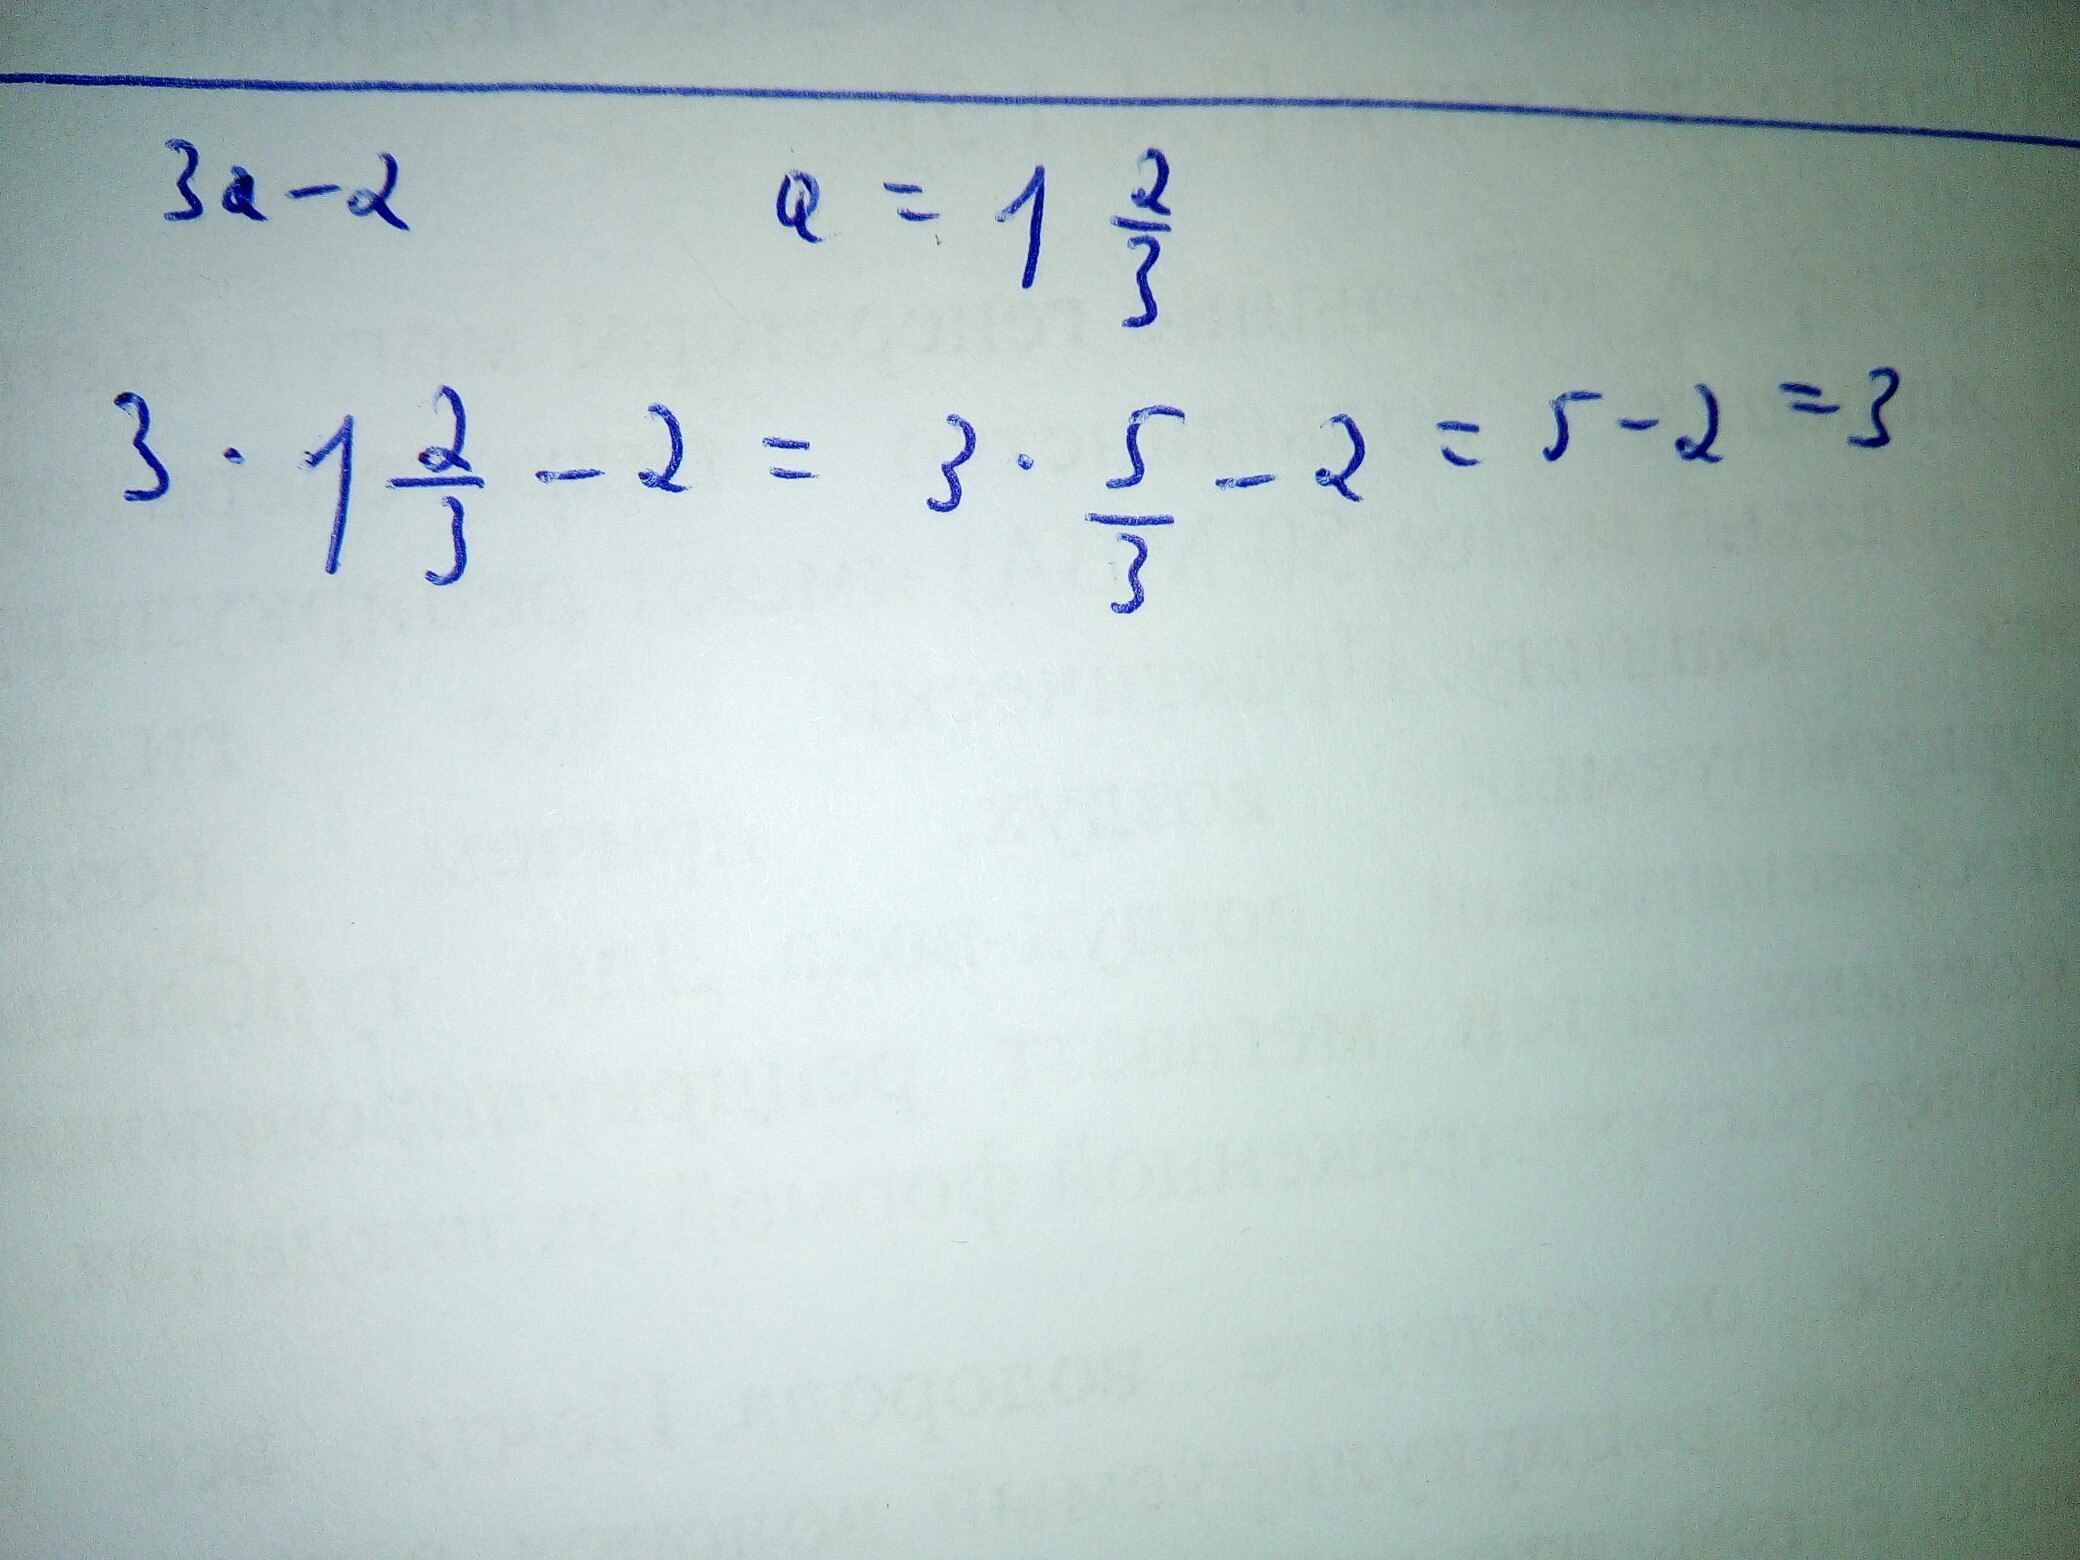 3a-2 a = 1 2/3
3 · 1 2/3 - 2 = 3 · 5/3 - 2 = 5-2 =3